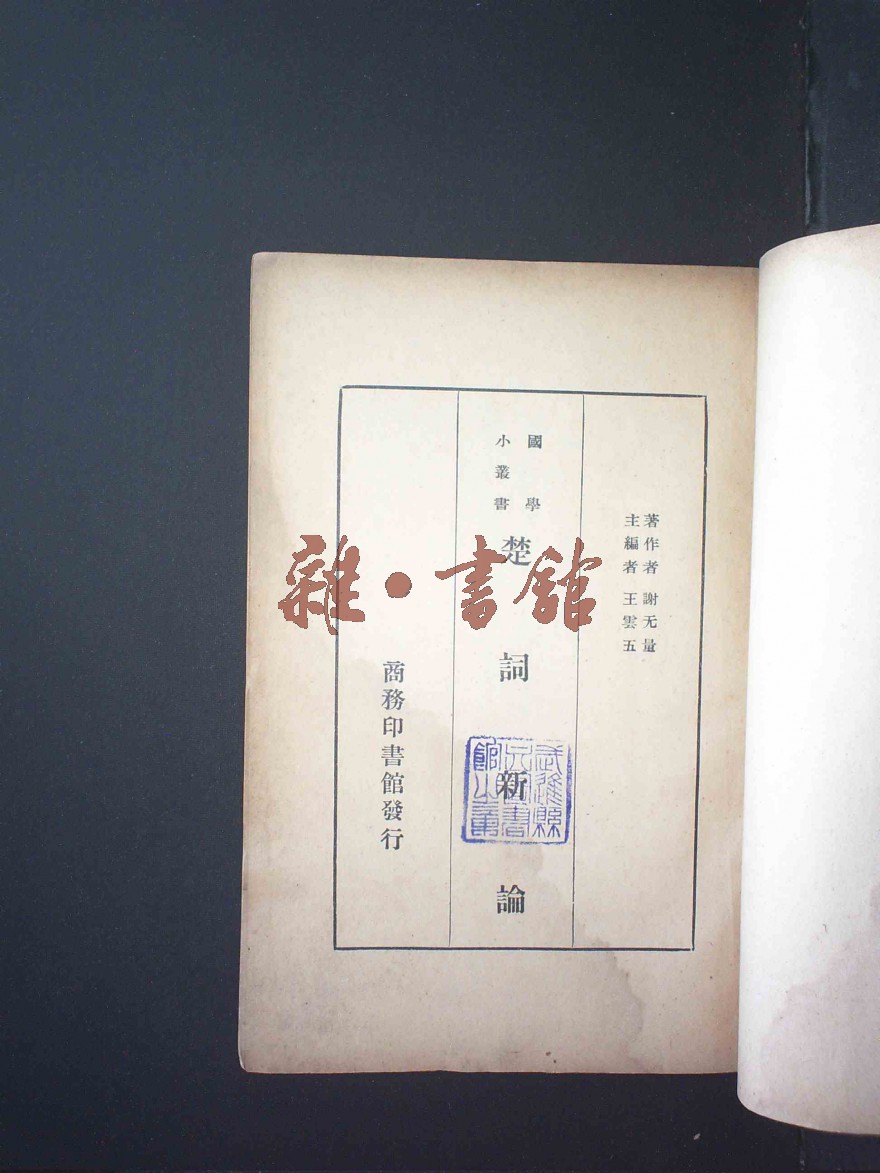 著作者 謝无量
主編者 王雲五
國學
小叢書
楚詞新論
商務印書館發行
雜·書館
武進縣
公圖書
館之章